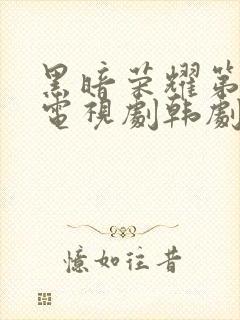 黑暗荣耀第
電視劇韩劇
憶如往昔